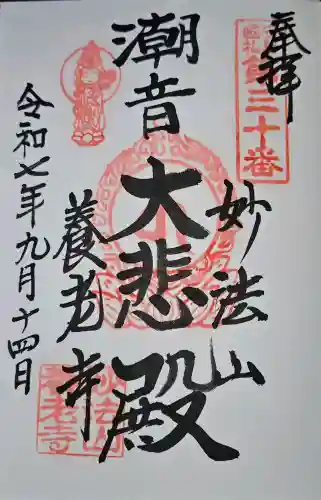 奉拝
第三十番
潮音
大悲殿
妙法山
養老寺
令和七年九月十四日
養老寺